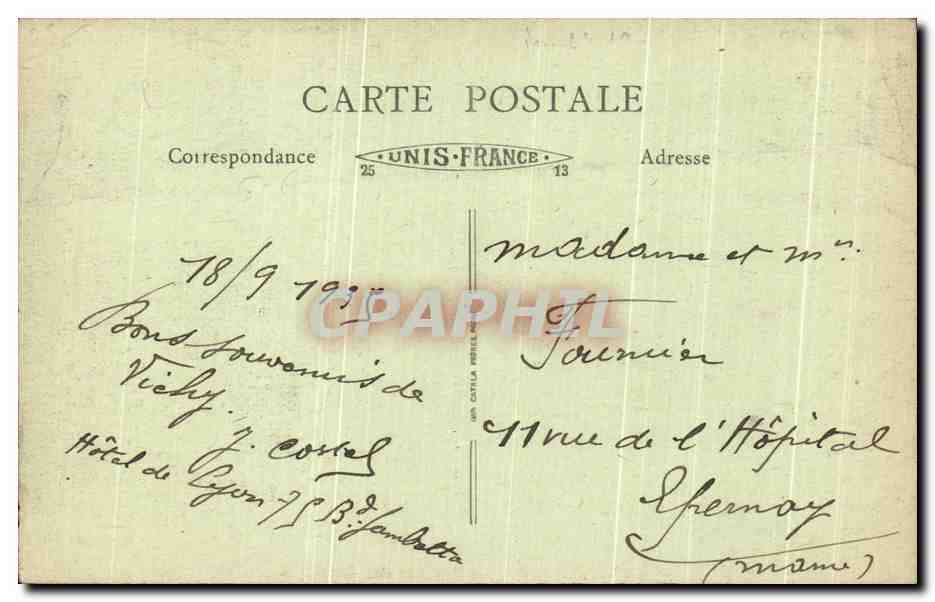 CARTE POSTALE
Correspondance
UNIS-FRANCE
25 13
Adresse
18/9 1935
Bons souvenirs de
Vichy.
J. Costel
Hôtel de Lyon 75 Bd. Gambetta
IMP. CATALA FRÈRES
CPAPHIL
madame et mr.
Fournier
11 rue de l'Hôpital
Epernay
(marne)